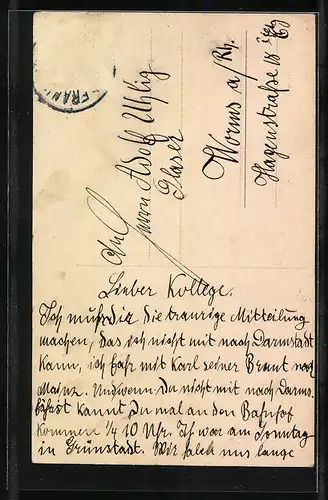 FRAN
An
Herrn Adolf Uhlig
Glaser
Worms a/Rh.
Hagenstraße 18
Lieber Kollege.
Ich muß dir die traurige Mitteilung
machen, das ich nicht mit nach Darmstadt
kann, ich fahr mit Karl seiner Braut nach
Mainz. Und wenn Du nicht mit nach Darms.
fährst kannst Du mal an den Bahnhof
kommen 1/4 10 Uhr. Ich war am Sonntag
in Grünstadt. Wir uns lange